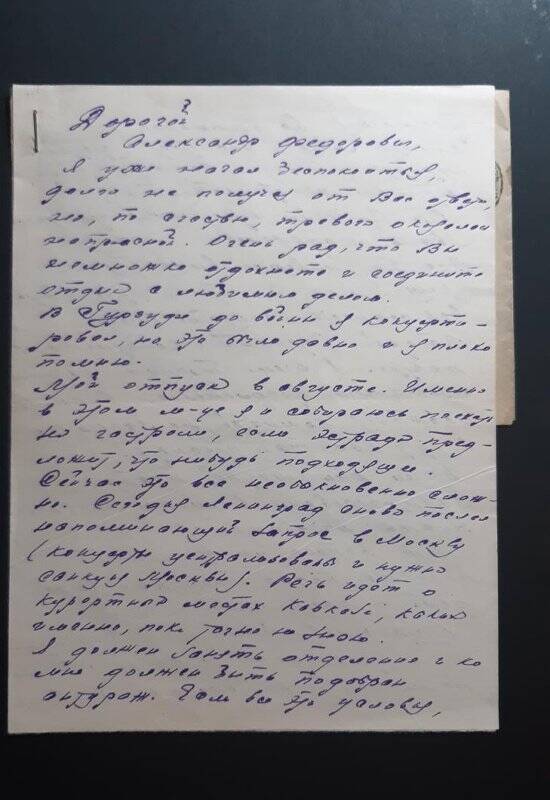 Дорогой
Александр Федорович,
я уже начал беспокоиться,
долго не получая от Вас ответа,
но, по счастью, тревога оказалась
напрасной. Очень рад, что Вы
немножко отдохнете и соедините
отдых с любимым делом.
В Гурзуфе до войны я концерти-
ровал, но это было давно и я плохо
помню.
Мой отпуск в августе. Именно
в этом м-це я и собираюсь поехать
на гастроли, если Эстрада пред-
ложит, что нибудь подходящее.
Сейчас это все необыкновенно слож-
но. Сегодня Ленинград снова послал
напоминающий запрос в Москву
(концерты централизованы и нужна
санкция Москвы). Речь идет о
курортных местах Кавказа, каких
именно, пока точно не знаю.
Я должен занять отделение и ко
мне должен быть подобран
антураж. Там все это условия,